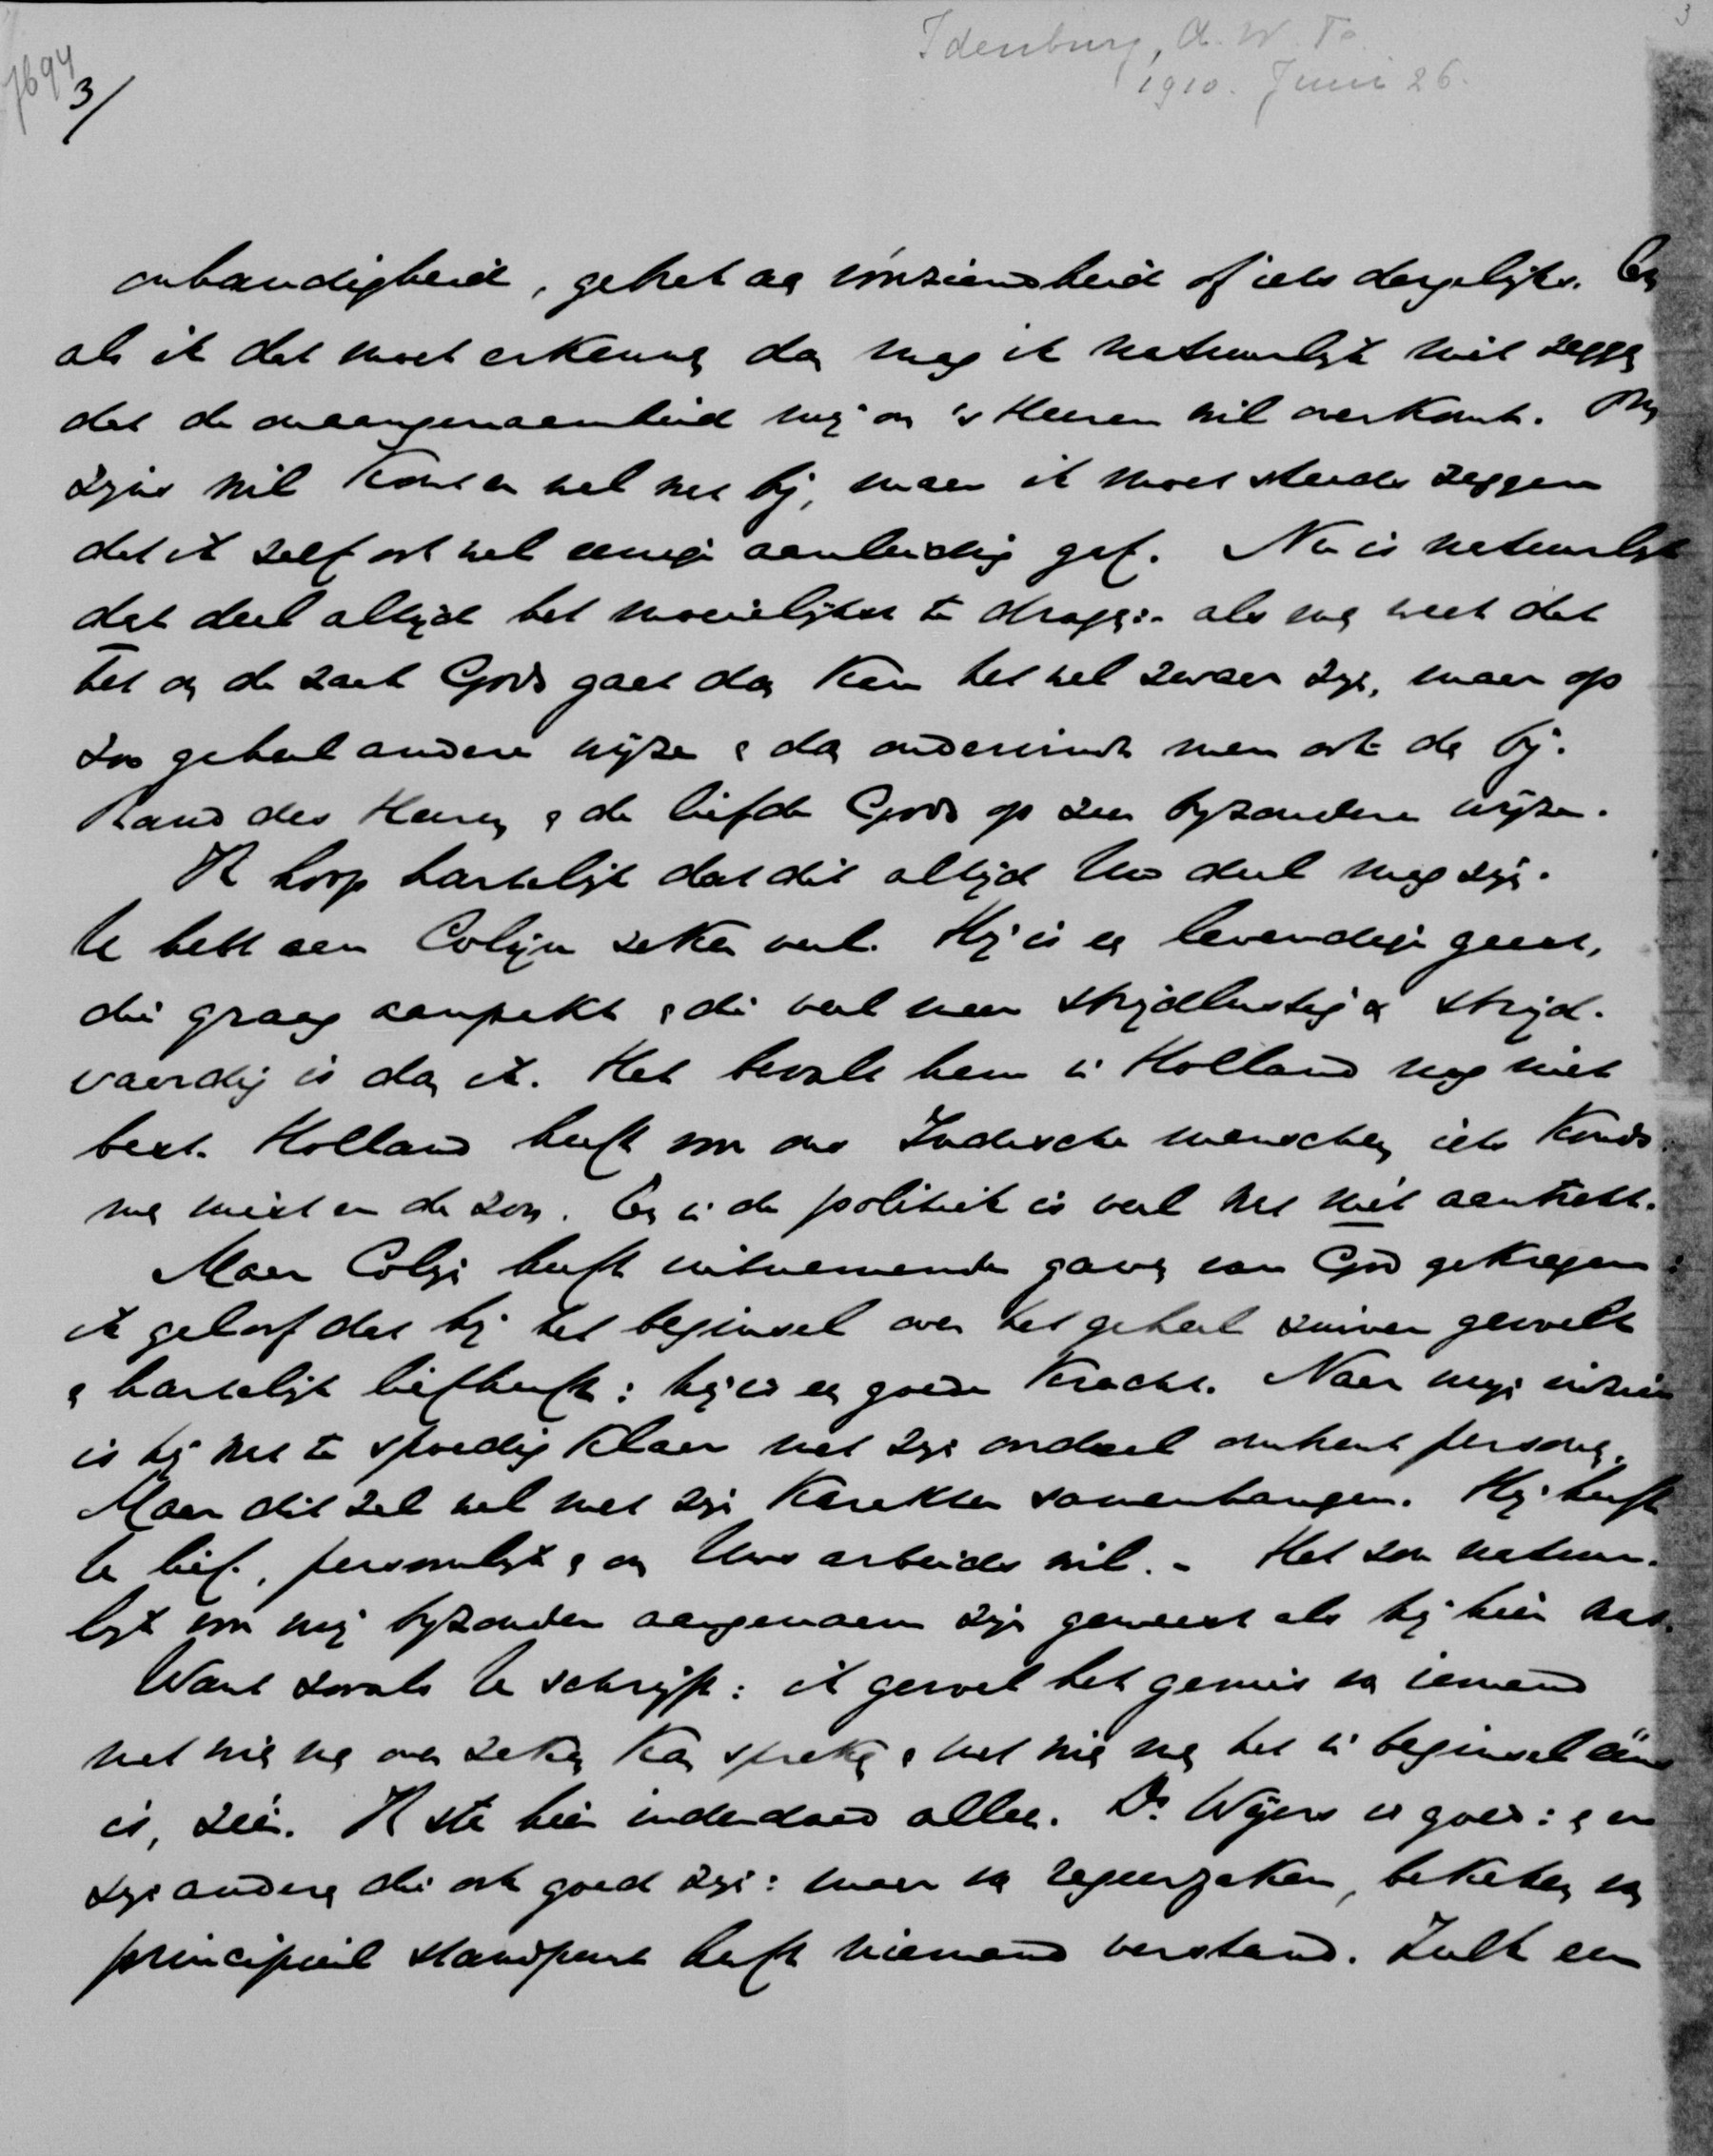 Idenburg, A. W. F.
1910. Juni 26.
3
7694
3/
onhandigheid, gebrek aan voorziendheid of iets dergelijks. En
als ik dat moet erkennen dan mag ik natuurlijk niet zeggen
dat de onaangenaamheid mij om 's Heeren wil overkomt. Om
Zijns wil komt er wel mee bij, maar ik moet steeds zeggen
dat ik zelf ook wel eenige aanleiding gaf. Nu is natuurlijk
dat deel altijd het moeielijkst te dragen:- als men weet dat
het om de zaak Gods gaat dan kan het wel zwaar zijn, maar op
zoo geheel andere wijze & dan ondervindt men ook den bij-
stand des Heeren & de liefde Gods op zeer byzondere wijze.
Ik hoop hartelijk dat dit altijd Uw deel mag zijn.
U hebt aan Colijn zeker veel. Hij is een levendige geest,
die graag aanpakt & die veel meer strijdlustig & strijd-
vaardig is dan ik. Het bevalt hem in Holland nog niet
best. Holland heeft voor ons Indische menschen iets kouds:
men mist er de zon. En in de politiek is veel het niet aantrekt.
Maar Colijn heeft uitnemende gaven van God gekregen:
ik geloof dat hij het beginsel over het geheel zuiver gevoelt
& hartelijk liefheeft: hij is een goede kracht. Naar mijn inzien
is hij wat te spoedig klaar met zijn oordeel omtrent personen.
Maar dit zal wel met zijn karakter samenhangen. Hij heeft
U lief, persoonlijk & om Uws arbeids wil. - Het zou natuur-
lijk voor mij byzonder aangenaam zijn geweest als hij hier was.
Want zooals U schrijft: ik gevoel het gemis van iemand
met wien men over zaken kan spreken & met wien men het in beginsel ééns
is, zéér. Ik sta hier inderdaad alleen. Dr. Wijers is goed: & er
zijn anderen die ook goed zijn: maar van regeerzaken, bekeken van
principieel standpunt heeft niemand verstand. Zulk een